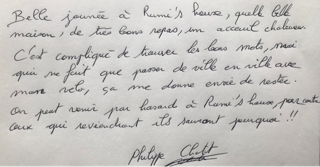 Belle journée à Rumi's house, quelle belle
maison, de très bons repas, un accueil chaleureux.
C'est compliqué de trouver les bons mots, moi
qui ne fait que passer de ville en ville avec
mon vélo, ça me donne envie de rester.
On peut venir par hasard à Rumi's house, par contre
ceux qui reviendront ils sauront pourquoi !!
Philippe